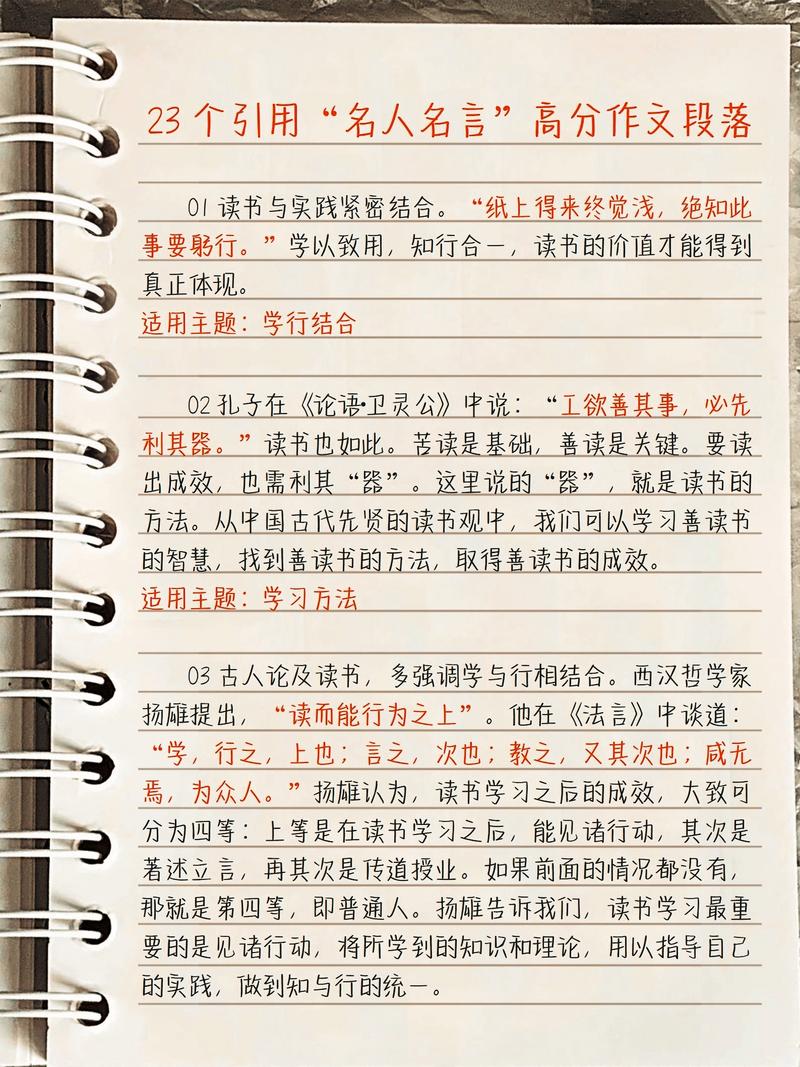 23个引用“名人名言”高分作文段落
01 读书与实践紧密结合。“纸上得来终觉浅，绝知此
事要躬行。”学以致用，知行合一，读书的价值才能得到
真正体现。
适用主题：学行结合
02 孔子在《论语·卫灵公》中说：“工欲善其事，必先
利其器。”读书也如此。苦读是基础，善读是关键。要读
出成效，也需利其“器”。这里说的“器”，就是读书的
方法。从中国古代先贤的读书观中，我们可以学习善读书
的智慧，找到善读书的方法，取得善读书的成效。
适用主题：学习方法
03 古人论及读书，多强调学与行相结合。西汉哲学家
扬雄提出，“读而能行为之上”。他在《法言》中谈道：
“学，行之，上也；言之，次也；教之，又其次也；咸无
焉，为众人。”扬雄认为，读书学习之后的成效，大致可
分为四等：上等是在读书学习之后，能见诸行动，其次是
著述立言，再其次是传道授业。如果前面的情况都没有，
那就是第四等，即普通人。扬雄告诉我们，读书学习最重
要的是见诸行动，将所学到的知识和理论，用以指导自己
的实践，做到知与行的统一。